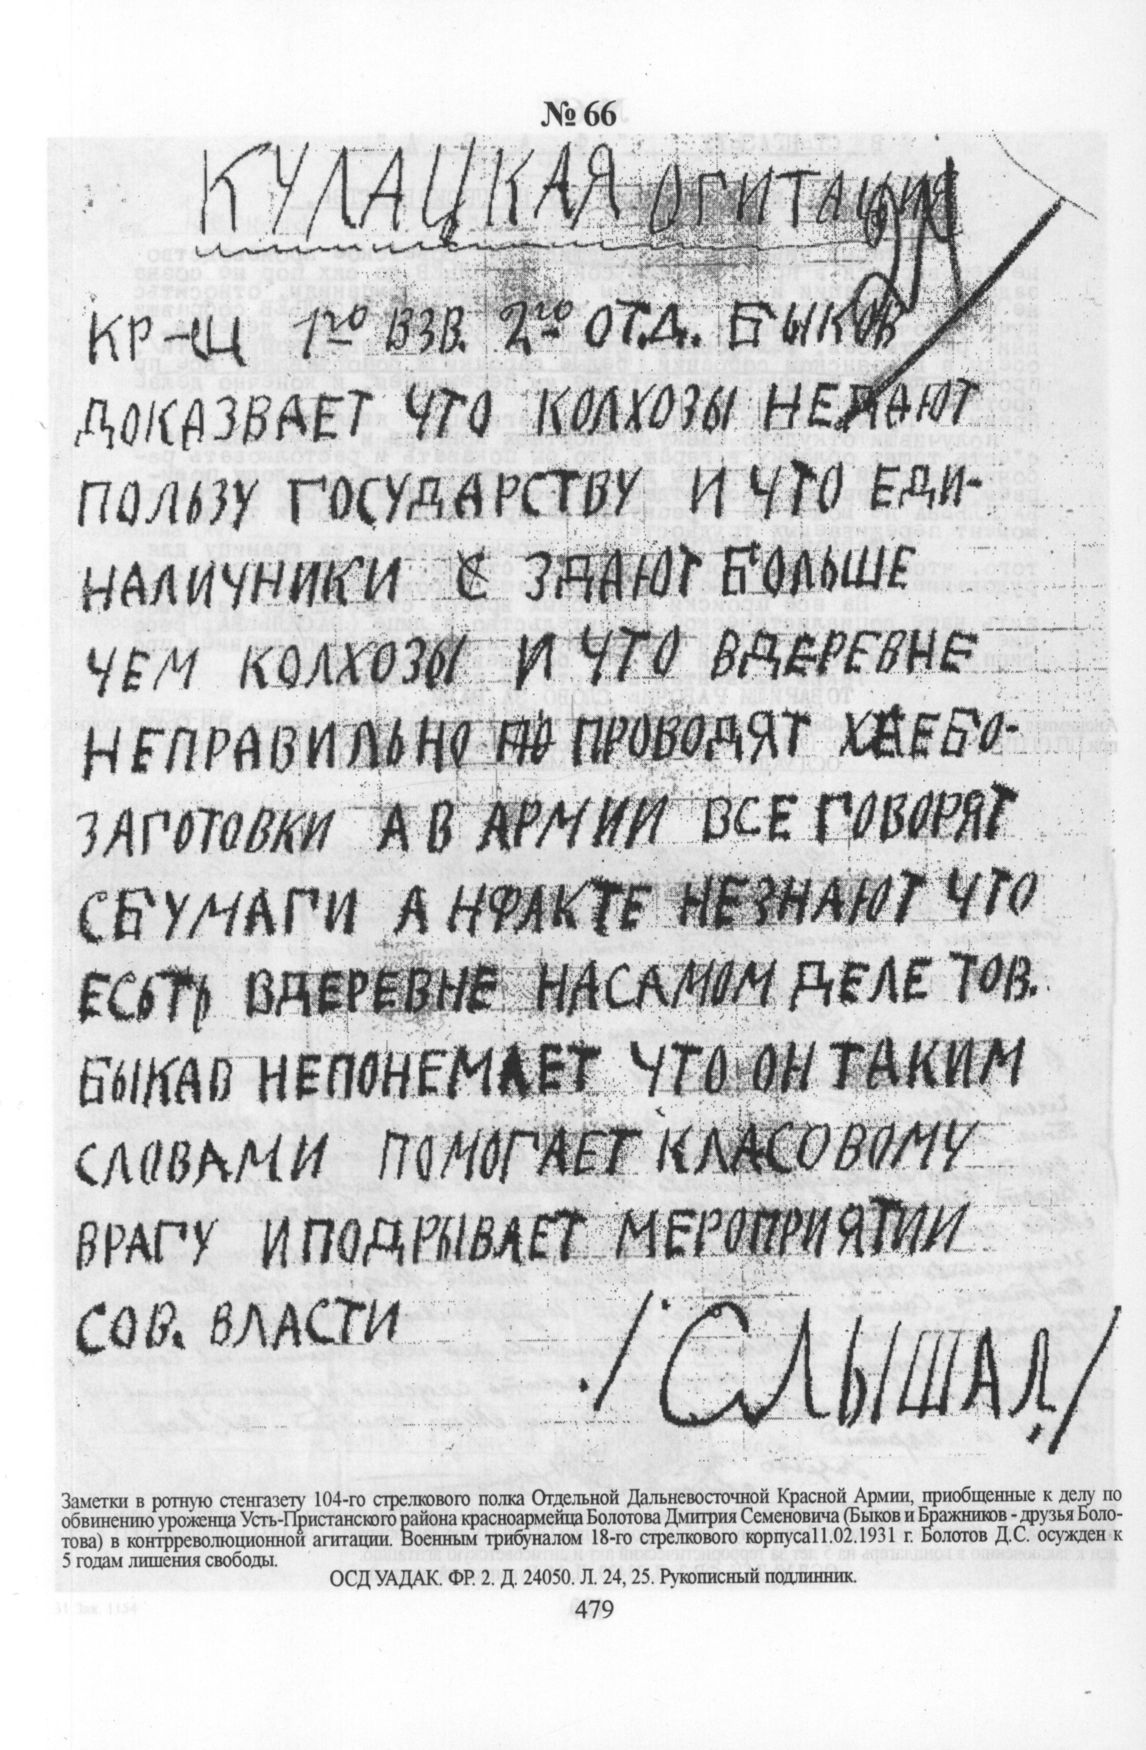 № 66
КУЛАЦКАЯ ОГИТАЦИЯ
КР-Ц 1го ВЗВ. 2го ОТД. БЫКОВ
ДОКАЗВАЕТ ЧТО КОЛХОЗЫ НЕДАЮТ
ПОЛЬЗУ ГОСУДАРСТВУ И ЧТО ЕДИ-
НАЛИЧНИКИ С ЗДАЮТ БОЛЬШЕ
ЧЕМ КОЛХОЗЫ И ЧТО ВДЕРЕВНЕ
НЕПРАВИЛЬНО ПО ПРОВОДЯТ ХЛЕБО-
ЗАГОТОВКИ А В АРМИИ ВСЕ ГОВОРЯТ
СБУМАГИ А НФАКТЕ НЕЗНАЮТ ЧТО
ЕСТЬ ВДЕРЕВНЕ НАСАМОМ ДЕЛЕ ТОВ.
БЫКАВ НЕПОНЕМАЕТ ЧТО ОН ТАКИМ
СЛОВАМИ ПОМОГАЕТ КЛАСОВОМУ
ВРАГУ И ПОДРЫВАЕТ МЕРОПРИЯТИИ
СОВ. ВЛАСТИ
/СЛЫШАЛ/
Заметки в ротную стенгазету 104-го стрелкового полка Отдельной Дальневосточной Красной Армии, приобщенные к делу по
обвинению уроженца Усть-Пристанского района красноармейца Болотова Дмитрия Семеновича (Быков и Бражников - друзья Боло-
това) в контрреволюционной агитации. Военным трибуналом 18-го стрелкового корпуса11.02.1931 г. Болотов Д.С. осужден к
5 годам лишения свободы.
ОСД УАДАК. ФР. 2. Д. 24050. Л. 24, 25. Рукописный подлинник.
479